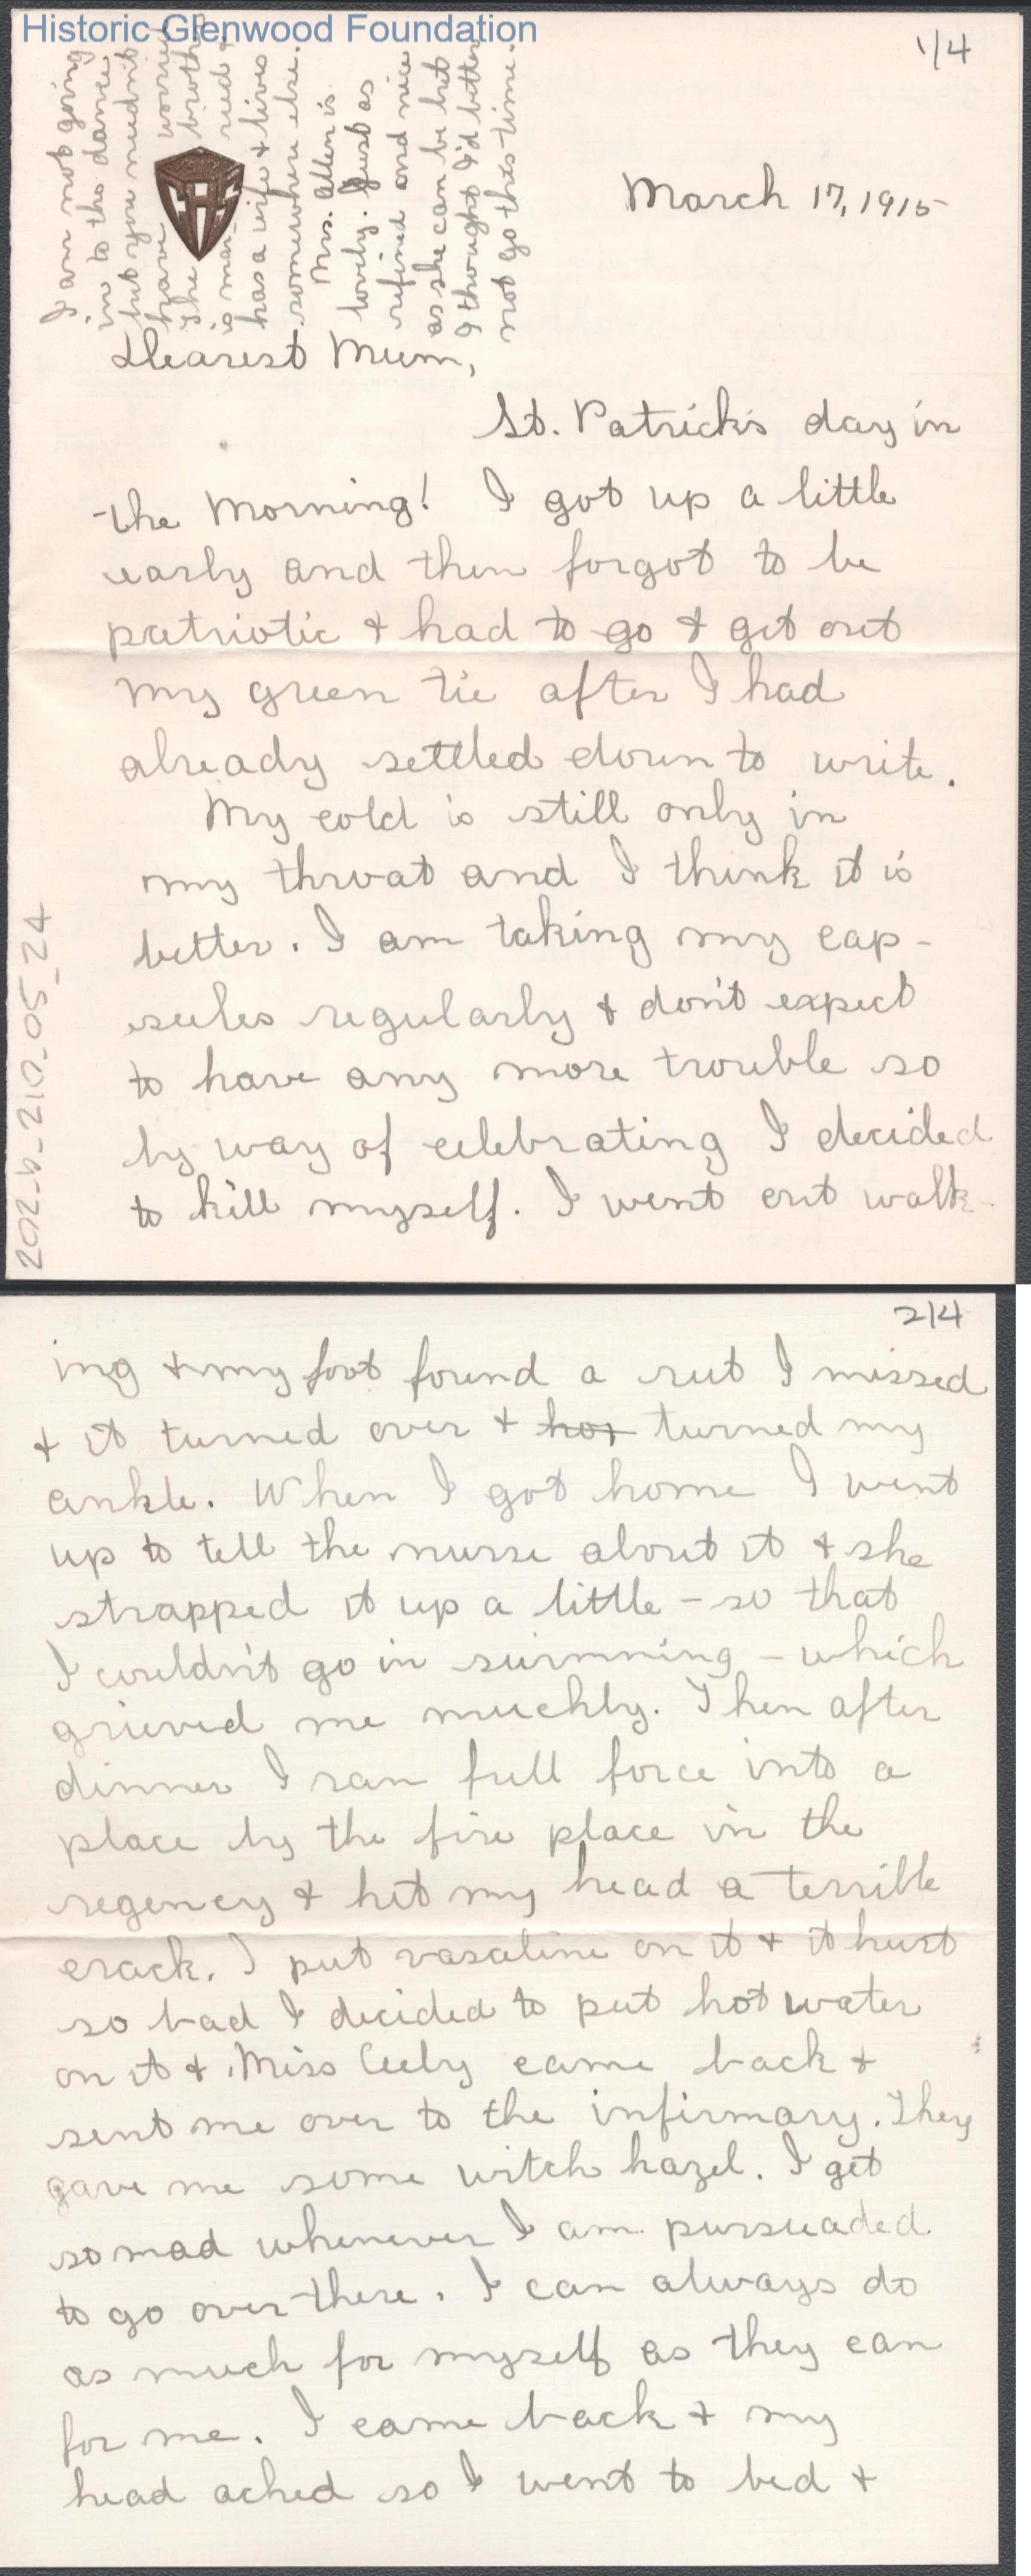 Historic Glenwood Foundation
1/4
I am not going
in to the dance
but you needn't
have worried
The brother
is married &
has a wife & lives
somewhere else.
Mrs. Allen is
lovely. Just as
refined and nice
as she can be but
I thought I'd better
not go this time.
March 17, 1915
Dearest Mum,
St. Patrick's day in
the Morning! I got up a little
early and then forgot to be
patriotic & had to go & get out
my green tie after I had
already settled down to write.
My cold is still only in
my throat and I think it is
better. I am taking my cap-
sules regularly & don't expect
to have any more trouble so
by way of celebrating I decided
to kill myself. I went out walk-
202_b_210_05_24
2/4
ing & my foot found a rut I missed
& it turned over & turned my
ankle. When I got home I went
up to tell the nurse about it & she
strapped it up a little - so that
I couldn't go in swimming - which
grieved me muchly. Then after
dinner I ran full force into a
place by the fire place in the
regency & hit my head a terrible
crack. I put vasaline on it & it hurt
so bad I decided to put hot water
on it & Miss came back &
sent me over to the infirmary. They
gave me some witch hazel. I get
so mad whenever I am pursuaded
to go over there. I can always do
as much for myself as they can
for me. I came back & my
head ached so I went to bed &